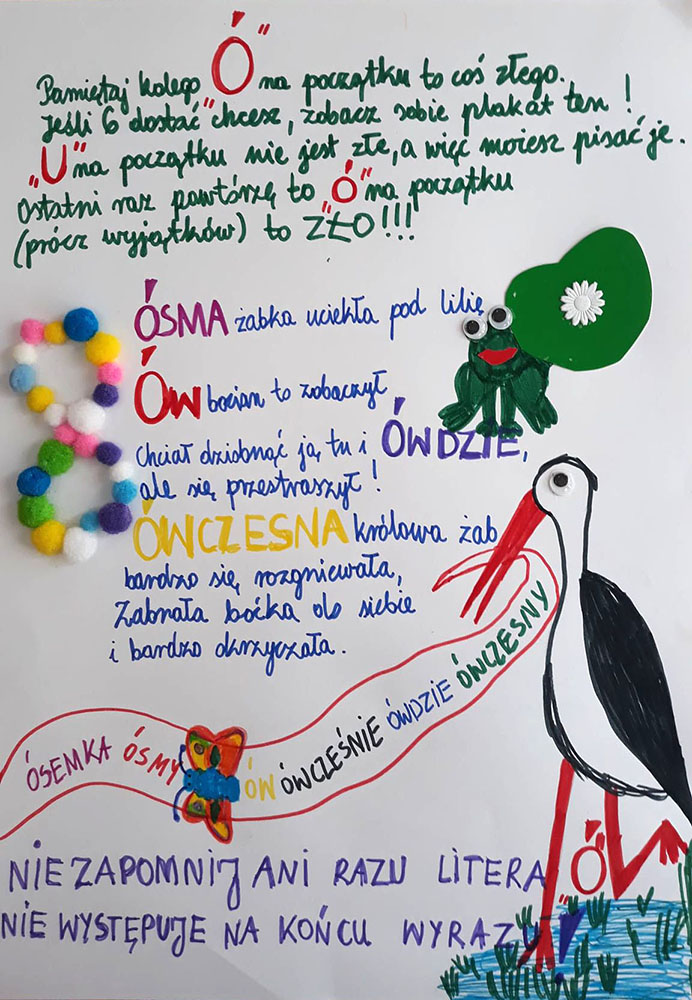 Pamiętaj kolego "Ó" na początku to coś złego.
Jeśli 6 dostać chcesz, zobacz sobie plakat ten!
"U" na początku nie jest złe, a więc możesz pisać je.
Ostatni raz powtórzę to "Ó" na początku
(prócz wyjątków) to ZŁO!!!
ÓSMA żabka uciekła pod lilię
ÓW bocian to zobaczył
Chciał dziobnąć ją tu i ÓWDZIE,
ale się przestraszył!
ÓWCZESNA królowa żab
bardzo się rozgniewała,
Zabrała boćka do siebie
i bardzo okrzyczała.
ÓSEMKA ÓSMY ÓW ÓWCZEŚNIE ÓWDZIE ÓWCZESNY
NIE ZAPOMNIJ ANI RAZU LITERA "Ó"
NIE WYSTĘPUJE NA KOŃCU WYRAZU!